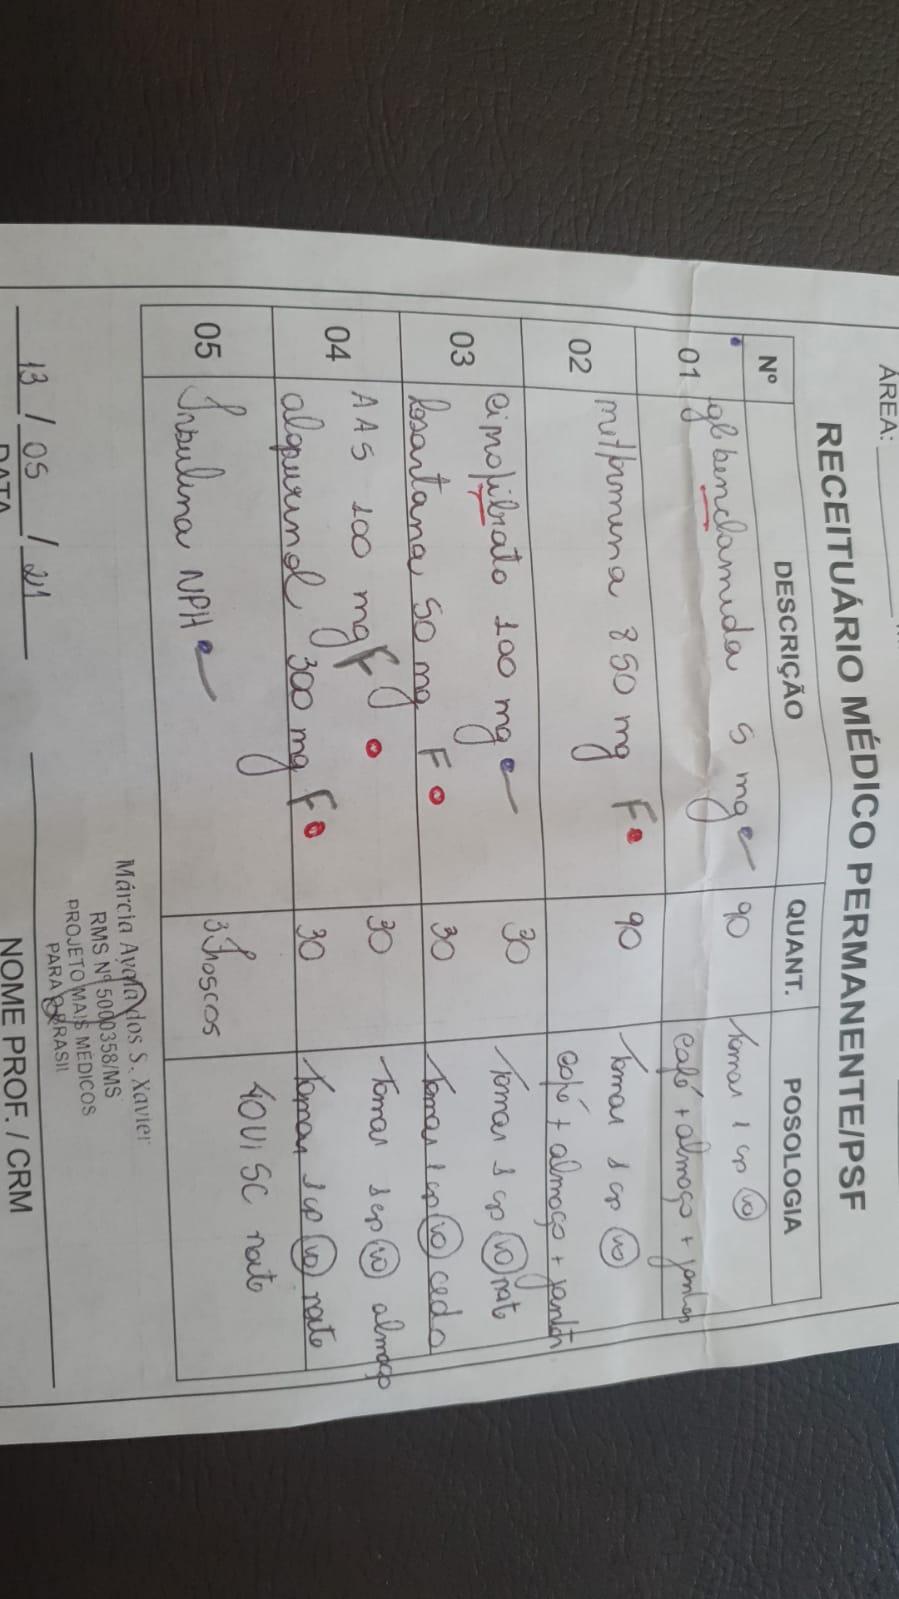 ÁREA:
RECEITUÁRIO MÉDICO PERMANENTE/PSF
Nº DESCRIÇÃO QUANT. POSOLOGIA
01 glibenclamida 5 mg 90 Tomar 1 cp (VO)
café + almoço + jantar
02 metformina 850 mg F 90 Tomar 1 cp (VO)
café + almoço + jantar
03 ciprofibrato 100 mg 30 Tomar 1 cp (VO) noite
losartana 50 mg F 30 Tomar 1 cp (VO) cedo
04 AAS 100 mg F 30 Tomar 1 cp (VO) almoço
alopurinol 300 mg F 30 Tomar 1 cp (VO) noite
05 Insulina NPH 3 frascos 40UI SC noite
Márcia dos S. Xavier
RMS Nº 5000358/MS
PROJETO MAIS MÉDICOS
PARA O BRASIL
13 / 05 / 21
DATA NOME PROF. / CRM